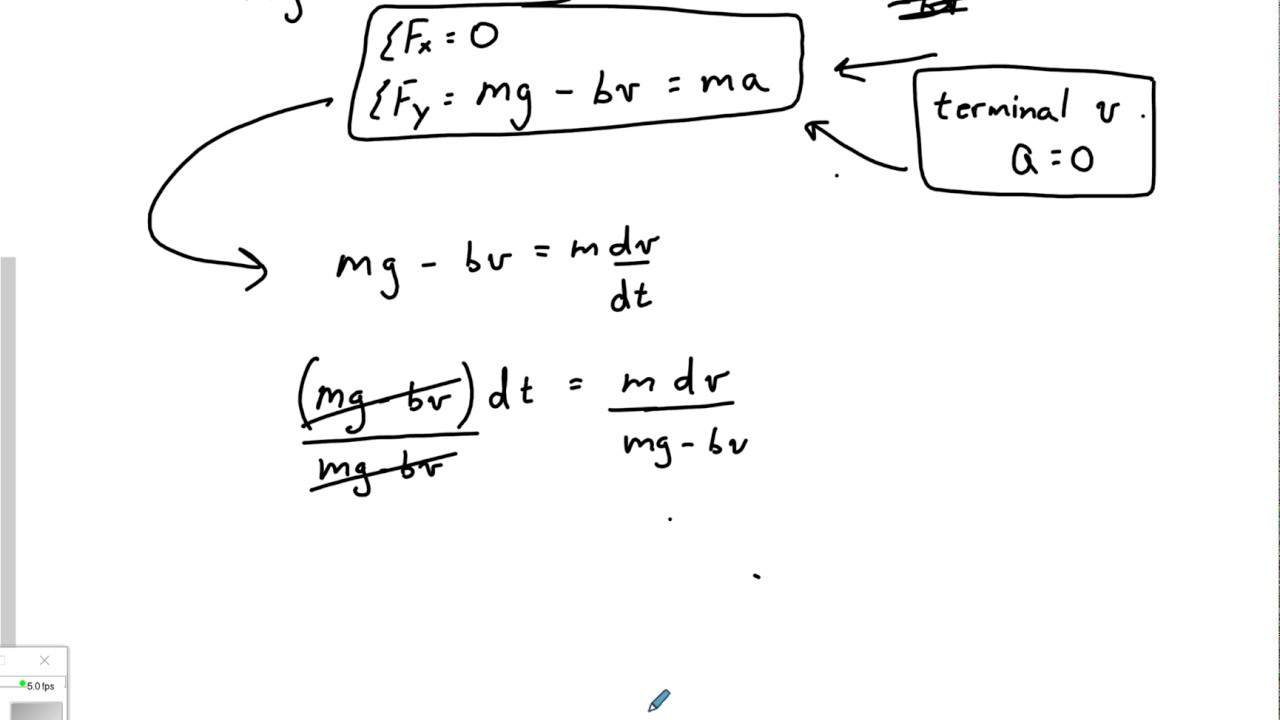 mg
ΣFx = 0
ΣFy = mg - bv = ma
terminal v
a = 0
mg - bv = m dv/dt
(mg - bv) dt / mg - bv = m dv / mg - bv
5.0 fps